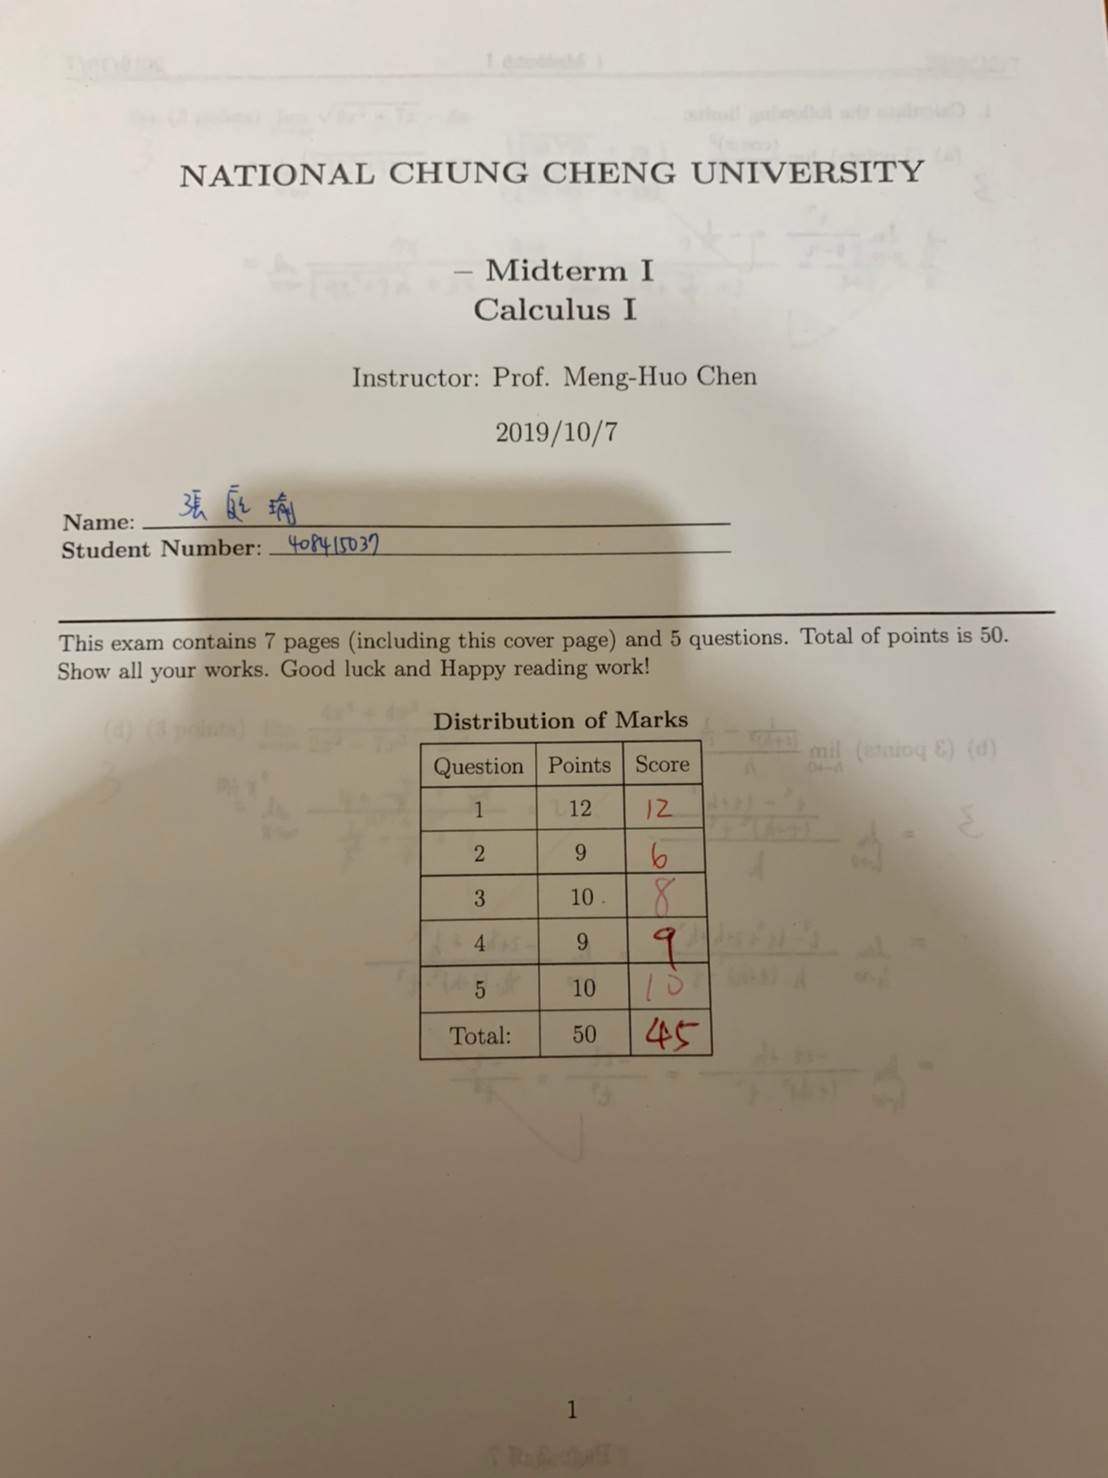 NATIONAL CHUNG CHENG UNIVERSITY
– Midterm I
Calculus I
Instructor: Prof. Meng-Huo Chen
2019/10/7
Name: 張
Student Number: 408415037
This exam contains 7 pages (including this cover page) and 5 questions. Total of points is 50.
Show all your works. Good luck and Happy reading work!
Distribution of Marks
Question Points Score
1 12 12
2 9 6
3 10 8
4 9 9
5 10 10
Total: 50 45
1